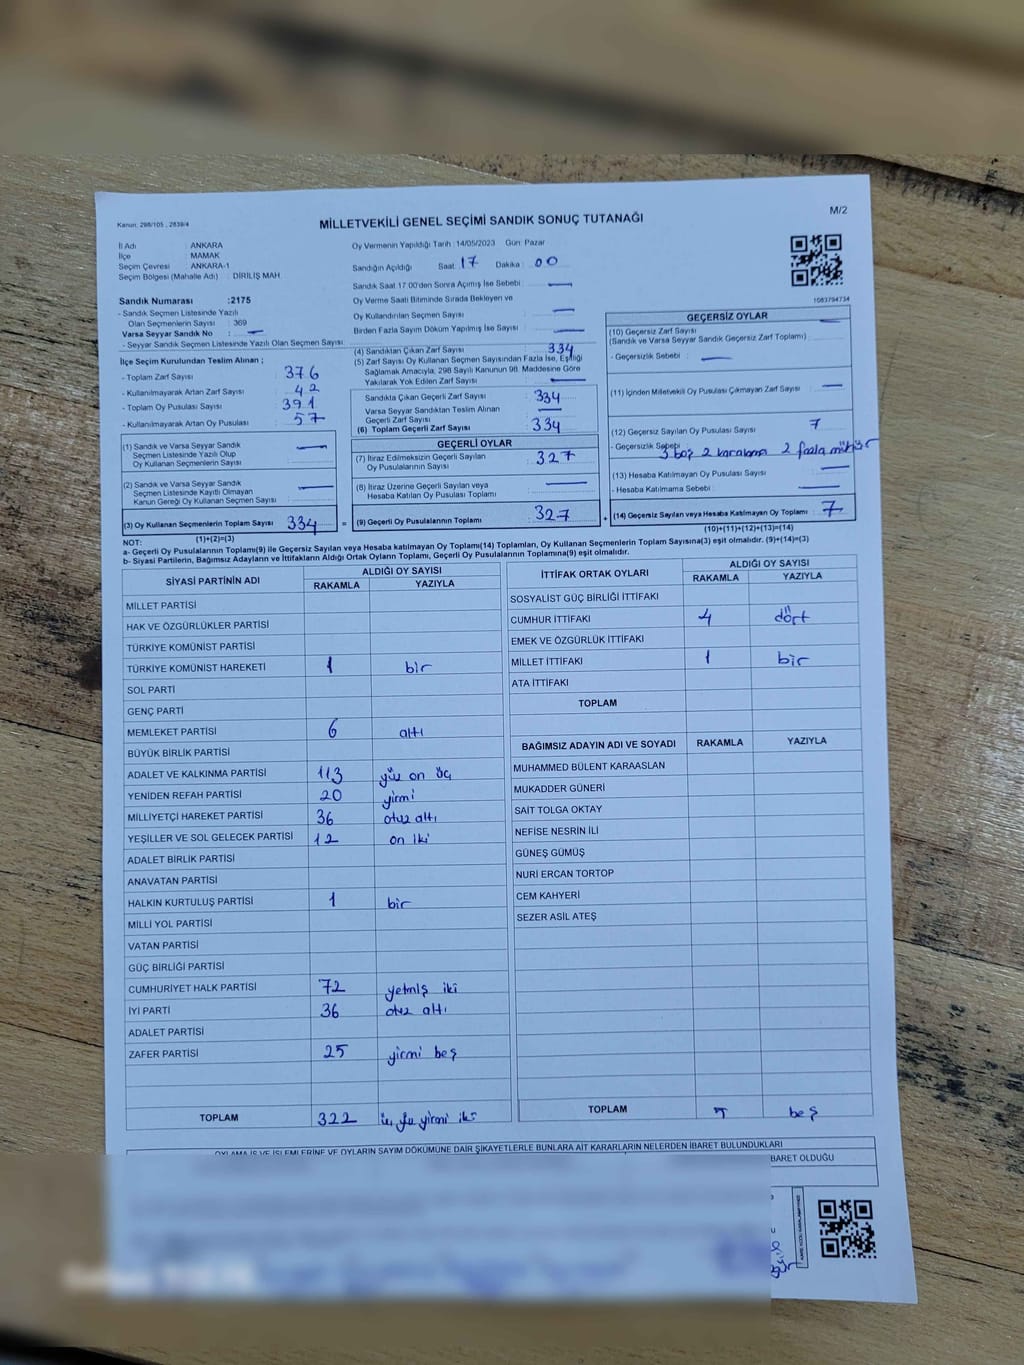 Kanun: 298/105 , 2839/4
MİLLETVEKİLİ GENEL SEÇİMİ SANDIK SONUÇ TUTANAĞI
M/2
İl Adı : ANKARA
İlçe : MAMAK
Seçim Çevresi : ANKARA-1
Seçim Bölgesi (Mahalle Adı) : DİRİLİŞ MAH
Sandık Numarası :2175
- Sandık Seçmen Listesinde Yazılı
Olan Seçmenlerin Sayısı : 369
Varsa Seyyar Sandık No : —
- Seyyar Sandık Seçmen Listesinde Yazılı Olan Seçmen Sayısı
Oy Vermenin Yapıldığı Tarih :14/05/2023 Gün: Pazar
Sandığın Açıldığı Saat: 17 Dakika : 00
Sandık Saat 17.00'den Sonra Açılmış İse Sebebi : —
Oy Verme Saati Bitiminde Sırada Bekleyen ve
Oy Kullandırılan Seçmen Sayısı : —
Birden Fazla Sayım Döküm Yapılmış İse Sayısı : —
1083794734
İlçe Seçim Kurulundan Teslim Alınan ;
- Toplam Zarf Sayısı : 376
- Kullanılmayarak Artan Zarf Sayısı : 42
- Toplam Oy Pusulası Sayısı : 391
- Kullanılmayarak Artan Oy Pusulası : 57
(1) Sandık ve Varsa Seyyar Sandık
Seçmen Listesinde Yazılı Olup
Oy Kullanan Seçmenlerin Sayısı : —
(2) Sandık ve Varsa Seyyar Sandık
Seçmen Listesinde Kayıtlı Olmayan
Kanun Gereği Oy Kullanan Seçmen Sayısı : —
(3) Oy Kullanan Seçmenlerin Toplam Sayısı 334 =
(1)+(2)=(3)
(4) Sandıktan Çıkan Zarf Sayısı : 334
(5) Zarf Sayısı Oy Kullanan Seçmen Sayısından Fazla İse, Eşitliği
Sağlamak Amacıyla, 298 Sayılı Kanunun 98. Maddesine Göre
Yakılarak Yok Edilen Zarf Sayısı : —
Sandıkta Çıkan Geçerli Zarf Sayısı : 334
Varsa Seyyar Sandıktan Teslim Alınan
Geçerli Zarf Sayısı : —
(6) Toplam Geçerli Zarf Sayısı : 334
GEÇERLİ OYLAR
(7) İtiraz Edilmeksizin Geçerli Sayılan
Oy Pusulalarının Sayısı : 327
(8) İtiraz Üzerine Geçerli Sayılan veya
Hesaba Katılan Oy Pusulası Toplamı : —
(9) Geçerli Oy Pusulalarının Toplamı : 327 +
GEÇERSİZ OYLAR
(10) Geçersiz Zarf Sayısı : —
(Sandık ve Varsa Seyyar Sandık Geçersiz Zarf Toplamı)
- Geçersizlik Sebebi : —
(11) İçinden Milletvekili Oy Pusulası Çıkmayan Zarf Sayısı : —
(12) Geçersiz Sayılan Oy Pusulası Sayısı : 7
- Geçersizlik Sebebi : 3 boş 2 karalama 2 fazla mühür
(13) Hesaba Katılmayan Oy Pusulası Sayısı : —
- Hesaba Katılmama Sebebi : —
(14) Geçersiz Sayılan veya Hesaba Katılmayan Oy Toplamı : 7
(10)+(11)+(12)+(13)=(14)
NOT:
a- Geçerli Oy Pusulalarının Toplamı(9) ile Geçersiz Sayılan veya Hesaba katılmayan Oy Toplamı(14) Toplamları, Oy Kullanan Seçmenlerin Toplam Sayısına(3) eşit olmalıdır. (9)+(14)=(3)
b- Siyasi Partilerin, Bağımsız Adayların ve İttifakların Aldığı Ortak Oyların Toplamı, Geçerli Oy Pusulalarının Toplamına(9) eşit olmalıdır.
SİYASİ PARTİNİN ADI ALDIĞI OY SAYISI
RAKAMLA YAZIYLA
MİLLET PARTİSİ
HAK VE ÖZGÜRLÜKLER PARTİSİ
TÜRKİYE KOMÜNİST PARTİSİ
TÜRKİYE KOMÜNİST HAREKETİ 1 bir
SOL PARTİ
GENÇ PARTİ
MEMLEKET PARTİSİ 6 altı
BÜYÜK BİRLİK PARTİSİ
ADALET VE KALKINMA PARTİSİ 113 yüz on üç
YENİDEN REFAH PARTİSİ 20 yirmi
MİLLİYETÇİ HAREKET PARTİSİ 36 otuz altı
YEŞİLLER VE SOL GELECEK PARTİSİ 12 on iki
ADALET BİRLİK PARTİSİ
ANAVATAN PARTİSİ
HALKIN KURTULUŞ PARTİSİ 1 bir
MİLLİ YOL PARTİSİ
VATAN PARTİSİ
GÜÇ BİRLİĞİ PARTİSİ
CUMHURİYET HALK PARTİSİ 72 yetmiş iki
İYİ PARTİ 36 otuz altı
ADALET PARTİSİ
ZAFER PARTİSİ 25 yirmi beş
TOPLAM 322 üç yüz yirmi iki
İTTİFAK ORTAK OYLARI ALDIĞI OY SAYISI
RAKAMLA YAZIYLA
SOSYALİST GÜÇ BİRLİĞİ İTTİFAKI
CUMHUR İTTİFAKI 4 dört
EMEK VE ÖZGÜRLÜK İTTİFAKI
MİLLET İTTİFAKI 1 bir
ATA İTTİFAKI
TOPLAM
BAĞIMSIZ ADAYIN ADI VE SOYADI RAKAMLA YAZIYLA
MUHAMMED BÜLENT KARAASLAN
MUKADDER GÜNERİ
SAİT TOLGA OKTAY
NEFİSE NESRİN İLİ
GÜNEŞ GÜMÜŞ
NURİ ERCAN TORTOP
CEM KAHYERİ
SEZER ASİL ATEŞ
TOPLAM 5 beş
OYLAMA İŞ VE İŞLEMLERİNE VE OYLARIN SAYIM DÖKÜMÜNE DAİR ŞİKAYETLERLE BUNLARA AİT KARARLARIN NELERDEN İBARET BULUNDUKLARI
BARET OLDUĞU